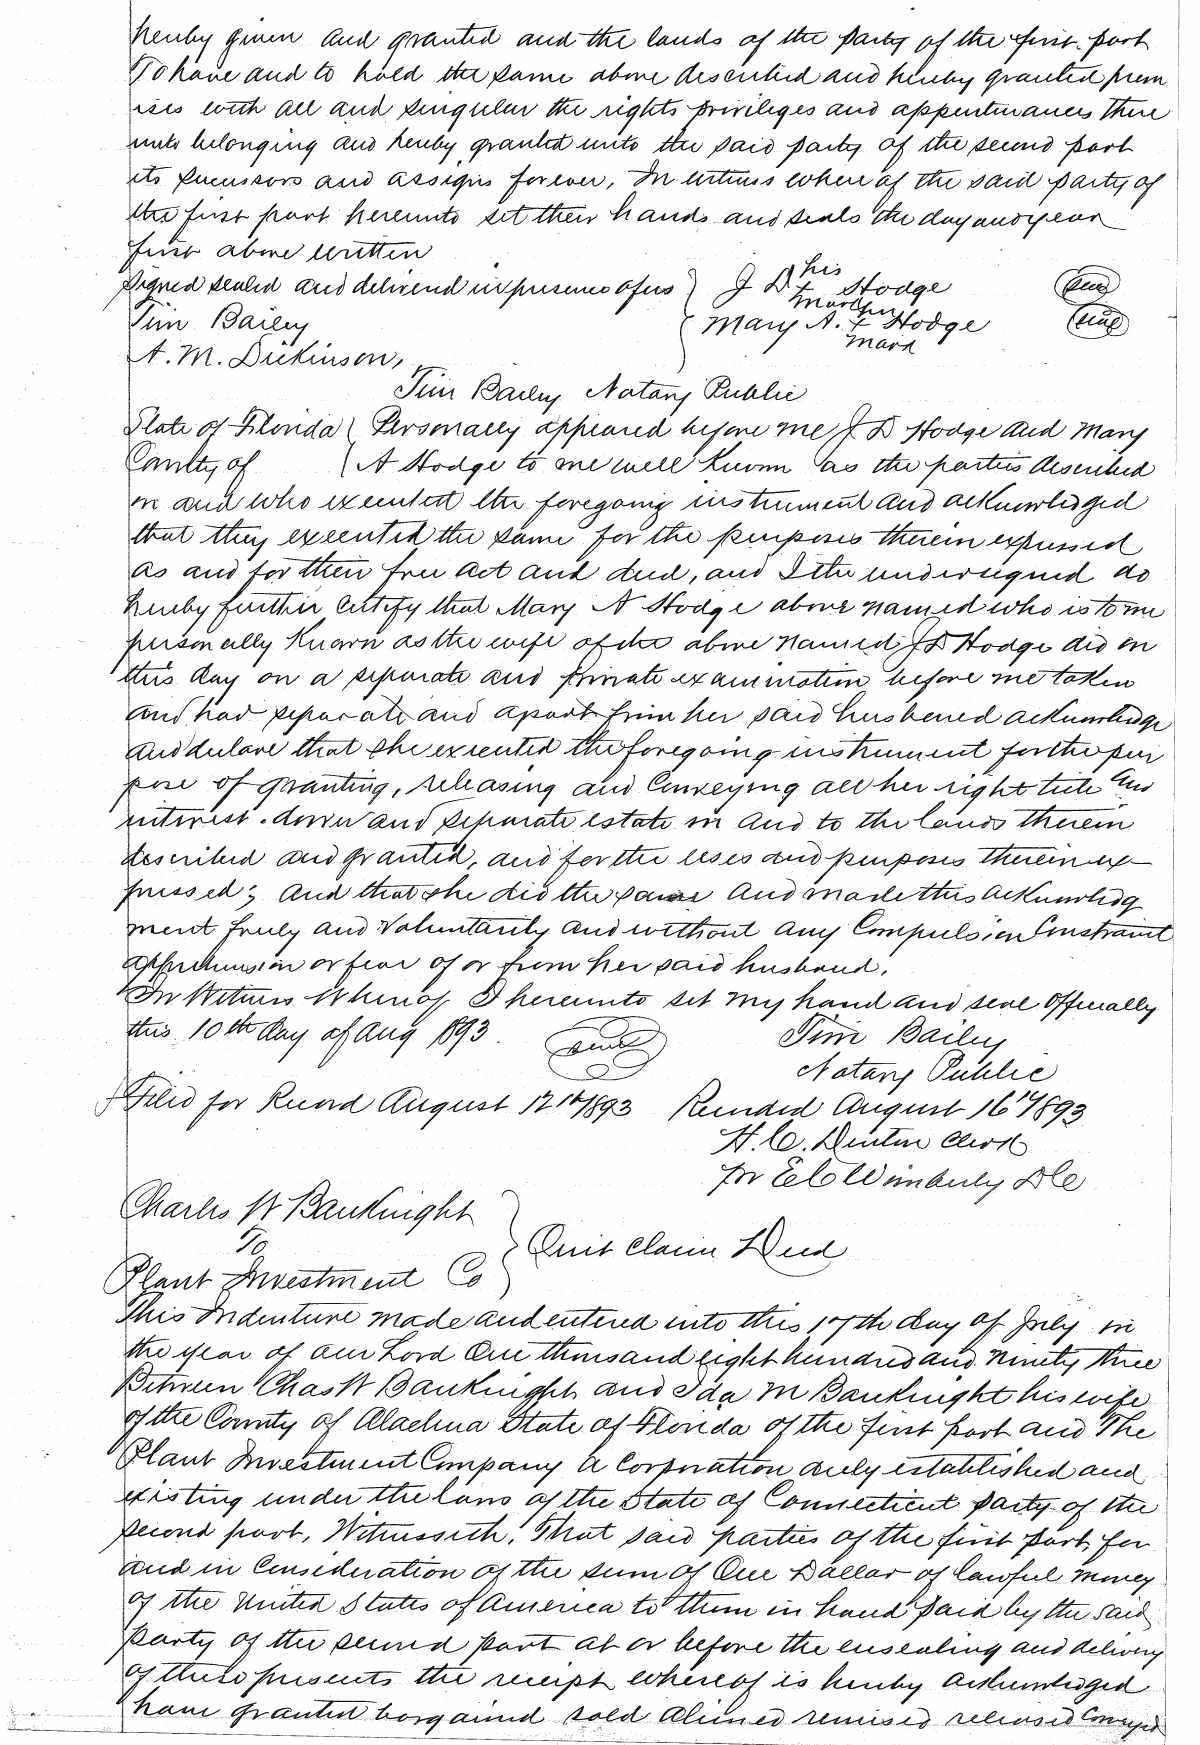 hereby given and granted and the lands of the party of the first part
To have and to hold the same above described and hereby granted prem
ises with all and singular the rights privileges and appurtenances there
unto belonging and hereby granted unto the said party of the second part
its successors and assigns forever, In witness whereof the said party of
the first part hereunto set their hands and seals the day and year
first above written
Signed sealed and delivered in presence of us J D his x mark Hodge seal
Tim Bailey Mary A. her x mark Hodge seal
A. M. Dickinson,
Tim Bailey Notary Public
State of Florida Personally appeared before me J D Hodge and Mary
County of A Hodge to me well known as the parties described
in and who executed the foregoing instrument and acknowledged
that they executed the same for the purposes therein expressed
as and for their free act and deed, and I the undersigned do
hereby further certify that Mary A Hodge above named who is to me
personally known as the wife of the above named J D Hodge did on
this day on a separate and private examination before me taken
and had separate and apart from her said husband acknowledge
and declare that she executed the foregoing instrument for the pur
pose of granting, releasing and conveying all her right title and
interest, dower and separate estate in and to the lands therein
described and granted, and for the uses and purposes therein ex-
pressed; and that she did the same and made this acknowledg
ment freely and voluntarily and without any compulsion constraint
apprehension or fear of or from her said husband.
In Witness Whereof I hereunto set my hand and seal officially
this 10th day of Aug 1893. seal Tim Bailey
Notary Public
Filed for Record August 12th 1893 Recorded August 16th 1893
H. C. Denton Clerk
Per E C Wimberly D C
Charles W Bauknight
To Quit Claim Deed
Plant Investment Co
This Indenture made and entered into this 17th day of July in
the year of our Lord One thousand eight hundred and ninety three
Between Chas W Bauknight and Ida M Bauknight his wife
of the County of Alachua State of Florida of the first part and The
Plant Investment Company a corporation duly established and
existing under the laws of the State of Connecticut party of the
second part, Witnesseth, That said parties of the first part, for
and in consideration of the sum of One Dollar of lawful money
of the United States of America to them in hand paid by the said
party of the second part at or before the ensealing and delivery
of these presents the receipt whereof is hereby acknowledged
have granted bargained sold aliened remised released conveyed